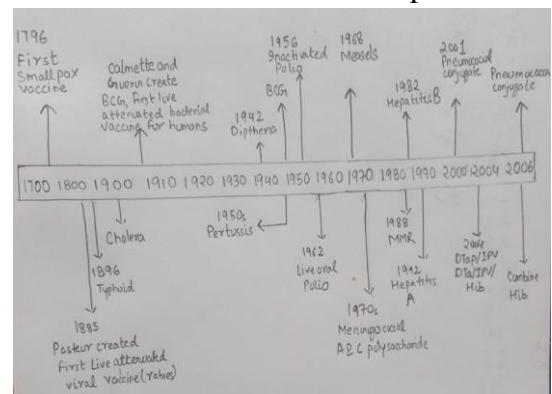 1796
First
Smallpox
vaccine
Calmette and
Guerin create
BCG, first live
attenuated bacterial
vaccine for humans
1942
Diptheria
1956
Inactivated
Polio
BCG
1968
Measels
1982
Hepatitis B
2001
Pneumococcal
conjugate
Pneumococcal
conjugate
1700 1800 1900 1910 1920 1930 1940 1950 1960 1970 1980 1990 2000 2004 2006
Cholera
1896
Typhoid
1885
Pasteur created
First Live attenuated
viral vaccine (rabies)
1950s
Pertussis
1962
Live oral
Polio
1970s
Meningococcal
A&C polysaccharide
1988
MMR
1992
Hepatitis
A
2004
DTaP/IPV
DTa/IPV/
Hib
Combine
Hib